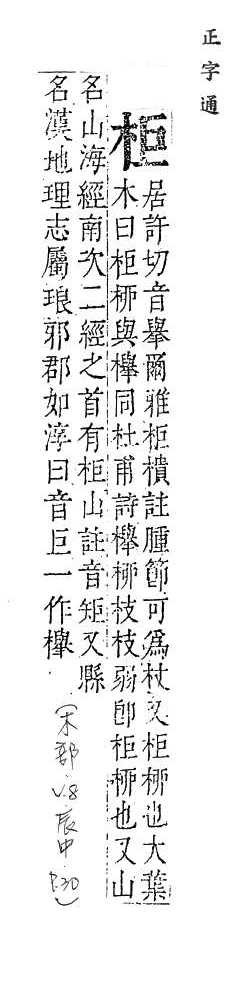 正字通
柜
居許切音擧爾雅柜樻註腫節可爲杖又柜桺也大葉
木曰柜桺與櫸同杜甫詩櫸桺枝枝弱卽柜桺也又山
名山海經南次二經之首有柜山註音矩又縣
名漢地理志屬琅邪郡如淳曰音巨一作櫸
(木部 v.8 辰中 P.30)